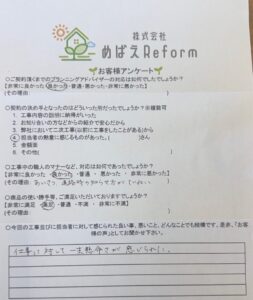 株式会社
めばえReform
お客様アンケート
○ご契約頂くまでのプランニングアドバイザーの対応は如何でしたでしょうか？
【非常に良かった・良かった・普通・悪かった・非常に悪かった】
(その理由: )
○契約の決め手となったのはどういった所だったでしょうか？※複数可
1. 工事内容の説明に納得がいった
2. お知り合いの方などからの紹介で安心だから
3. 弊社において二次工事(以前に工事をしたことがある)から
4. 担当者の熱意に感じるものがあった。( )さん
5. 金額面
6. その他( )
○工事中の職人のマナーなど、対応は如何であったでしょうか？
【非常に良かった・良かった・普通・悪かった・非常に悪かった】
(その理由:
○商品の使い勝手等、ご満足いただいておりますでしょうか？
【非常に満足・満足・普通・不満・非常に不満】
(その理由: )
○今回の工事並びに担当者に対して感じられた良い事、悪いこと、どんなことでも結構です、是非、「お客
様の声」としてお聞かせ下さい。
仕事に対して一生懸命さが感じられた。